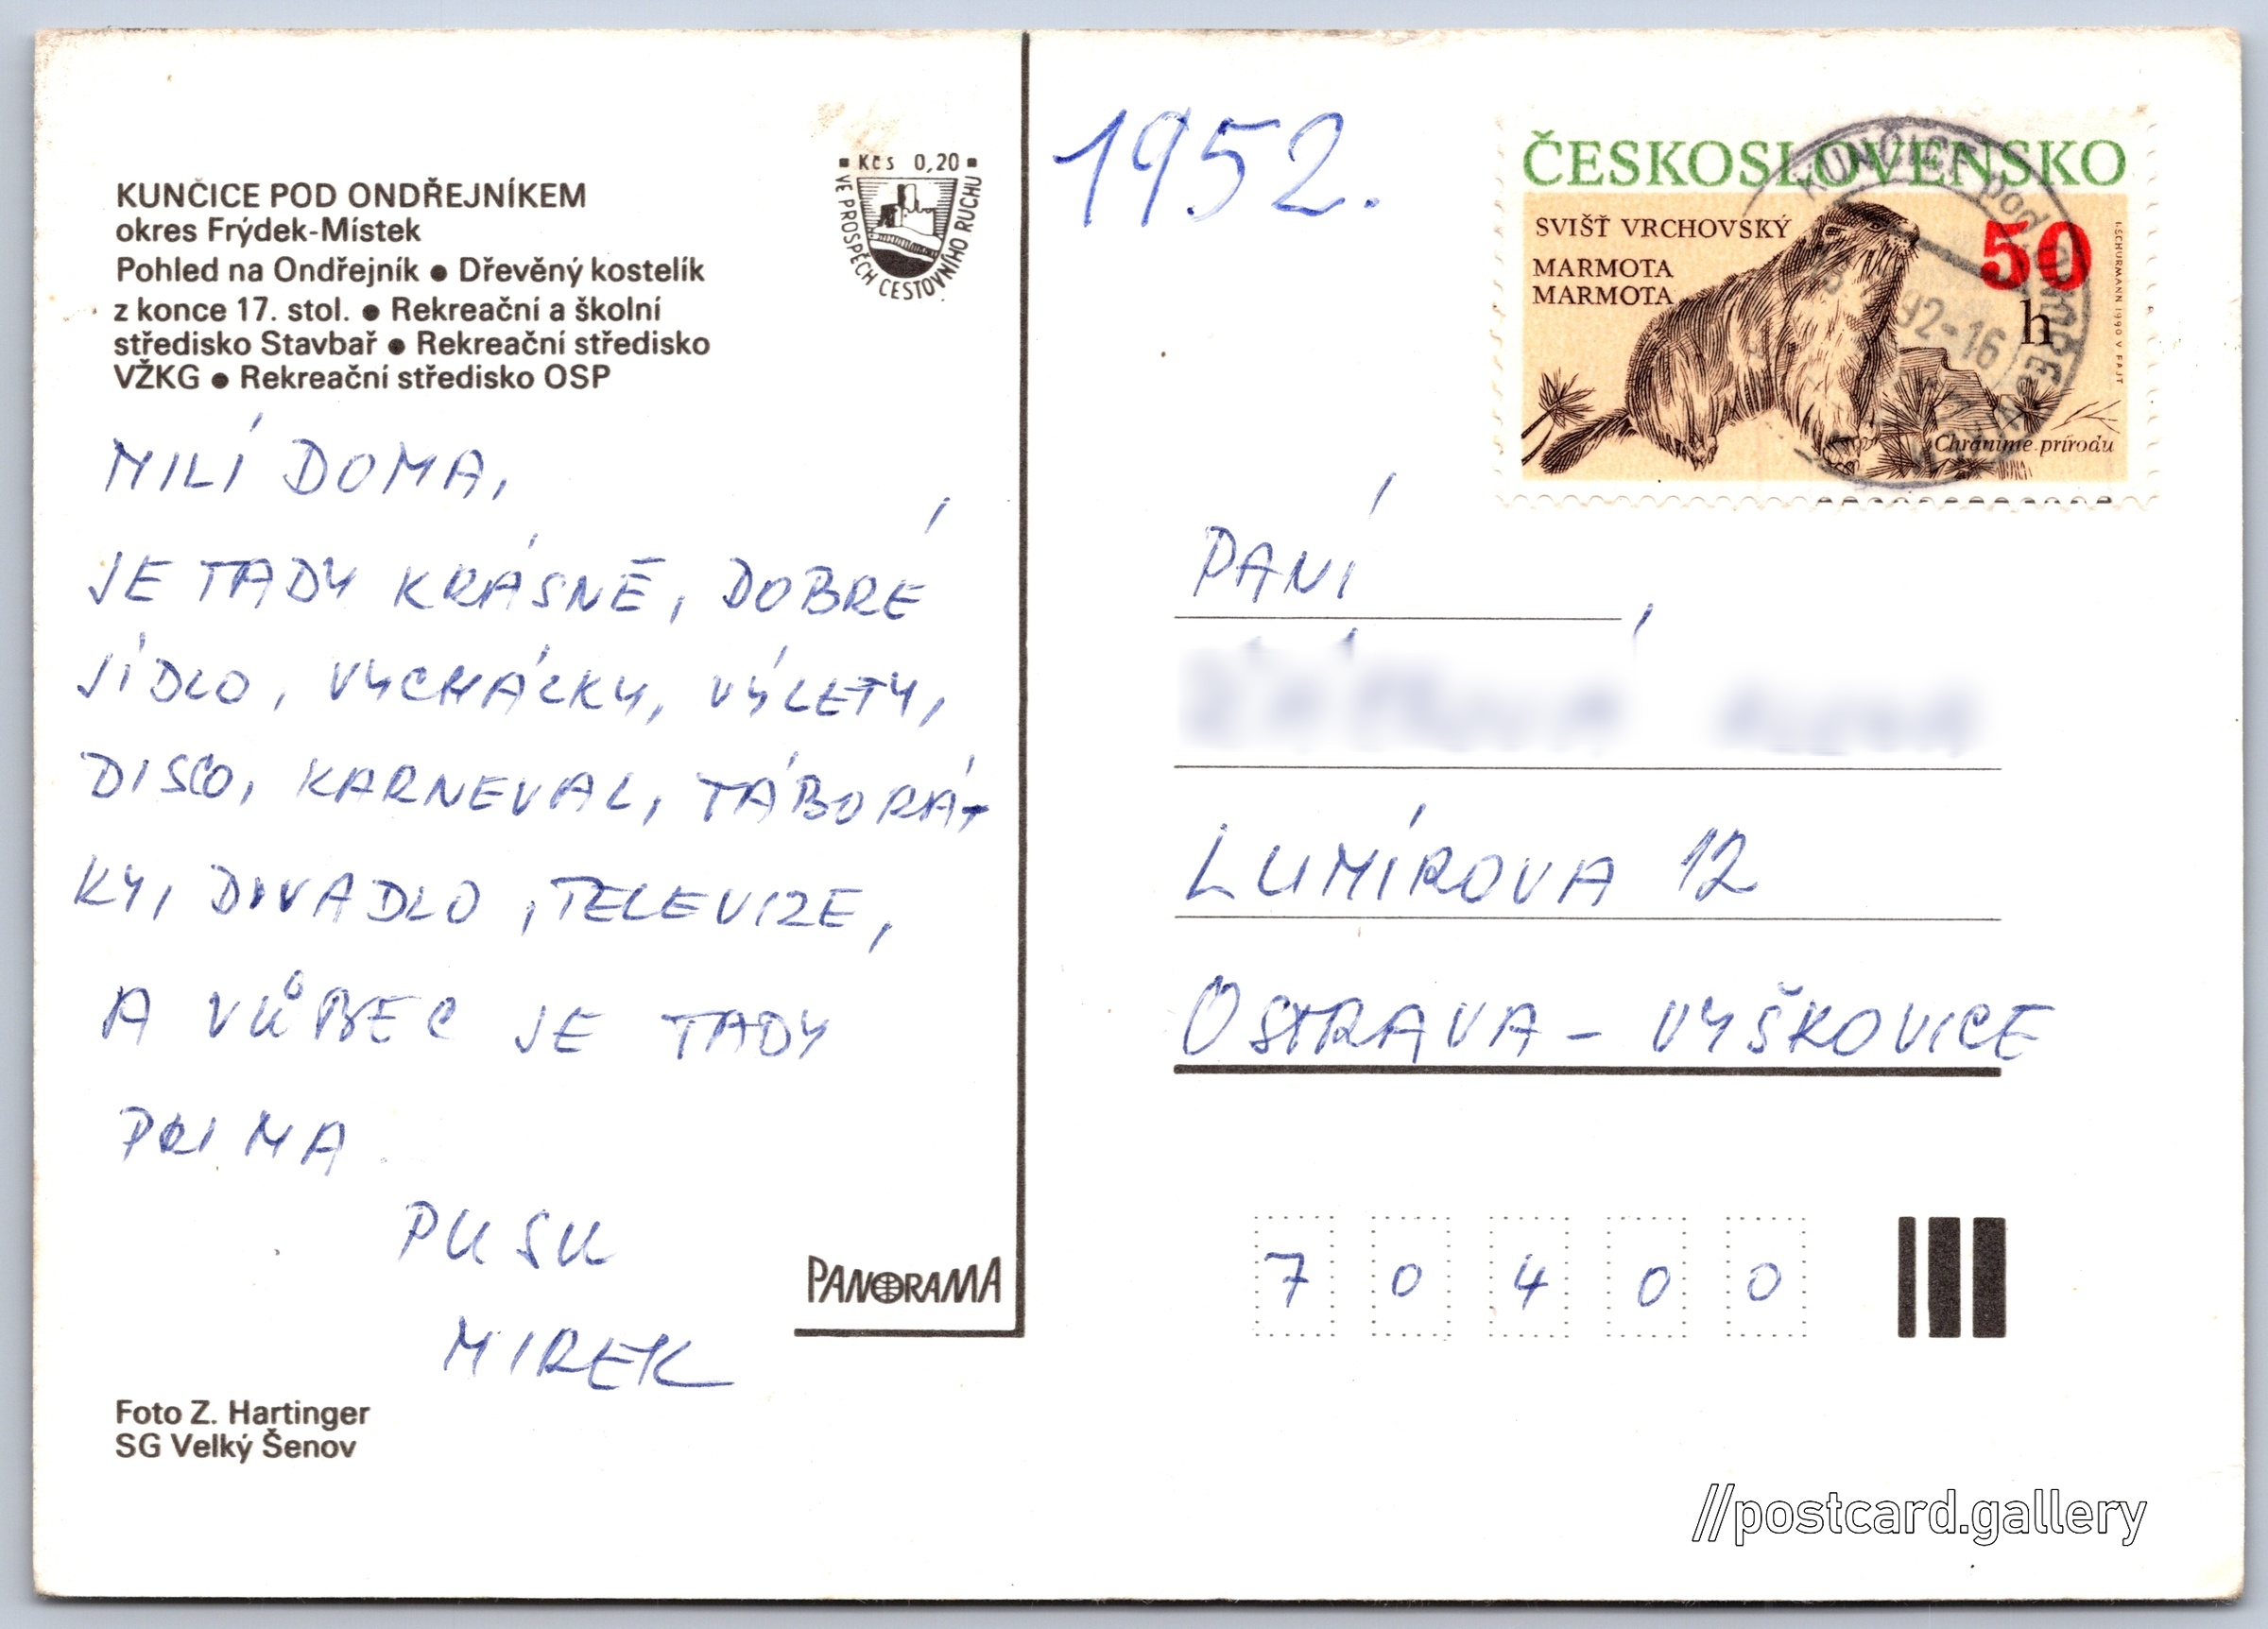 KUNČICE POD ONDŘEJNÍKEM
okres Frýdek-Místek
Pohled na Ondřejník ● Dřevěný kostelík
z konce 17. stol. ● Rekreační a školní
středisko Stavbař ● Rekreační středisko
VŽKG ● Rekreační středisko OSP
▪ Kčs 0,20 ▪
VE PROSPĚCH CESTOVNÍHO RUCHU
MILÍ DOMA,
JE TADY KRÁSNĚ, DOBRÉ
JÍDLO, VYCHÁZKY, VÝLETY,
DISCO, KARNEVAL, TÁBORÁ-
KY, DIVADLO, TELEVIZE,
A VŮBEC JE TADY
PRIMA
PUSU
MIREK
PANORAMA
Foto Z. Hartinger
SG Velký Šenov
1952.
ČESKOSLOVENSKO
SVIŠŤ VRCHOVSKÝ
MARMOTA
MARMOTA
50
h
I.SCHURMANN 1990 V FAJT
Chráníme přírodu
KUNČICE pod ONDŘEJN.
92-16
PANÍ
LUMÍROVA 12
OSTRAVA - VYŠKOVICE
7 0 4 0 0
//postcard.gallery